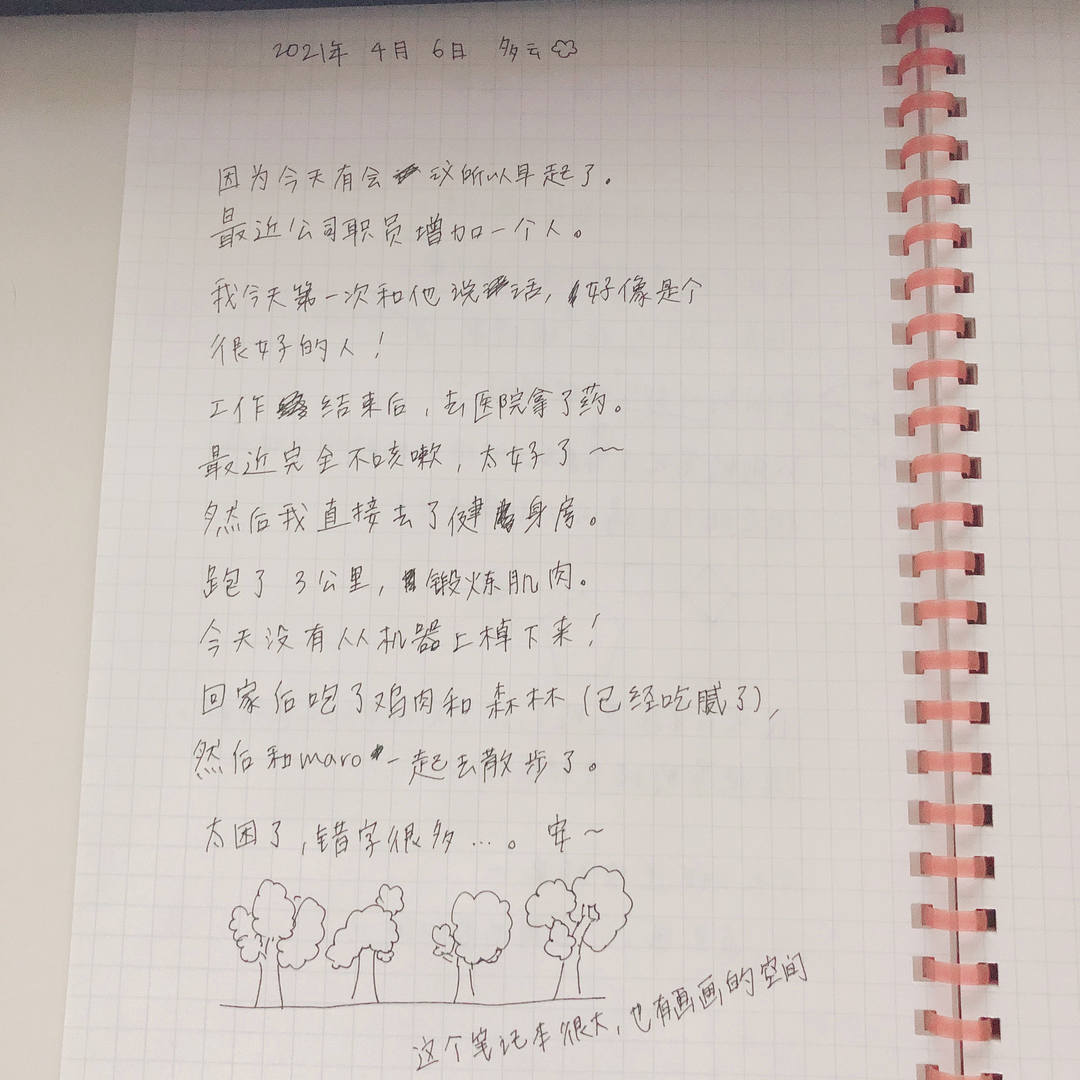 2021年 4月 6日 多云
因为今天有会议所以早起了.
最近公司职员增加一个人。
我今天第一次和他说话, 好像是个
很好的人!
工作结束后, 去医院拿了药。
最近完全不咳嗽, 太好了~
然后我直接去了健身房。
跑了 3公里, 锻炼肌肉。
今天没有从机器上掉下来!
回家后吃了鸡肉和森林 (已经吃腻了),
然后和maro一起去散步了。
太困了, 错字很多…。 安~
这个笔记本很大, 也有画画的空间